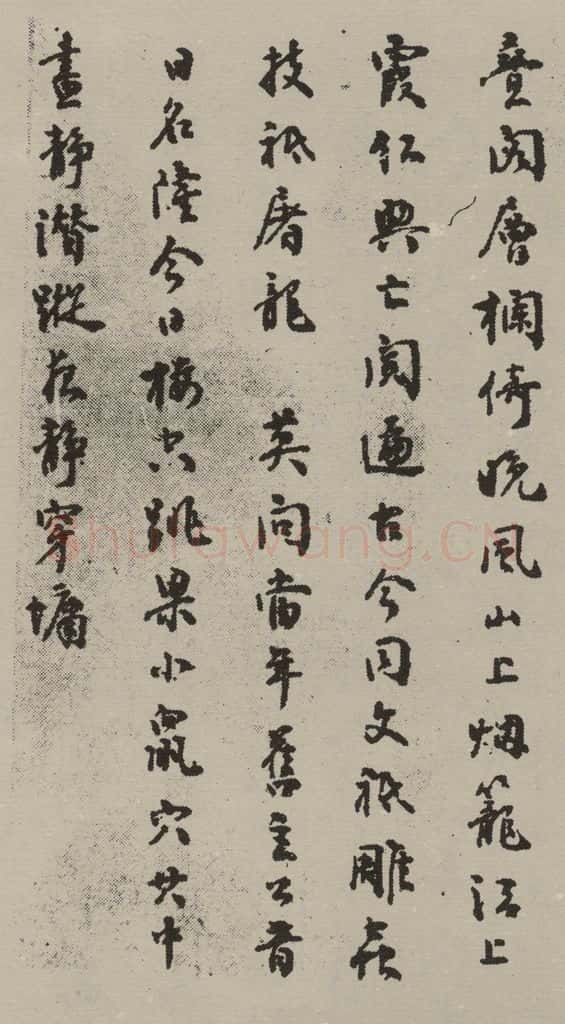 疊閣層欄倚晚風山上烟籠江上
霞紅興亡閱遍古今同文祇雕蟲
技祇屠龍　莫問當年舊主公昔
日名隆今日樓空跳梁小鼠穴其中
晝靜潛蹤夜靜穿墉
Shufawang.CN